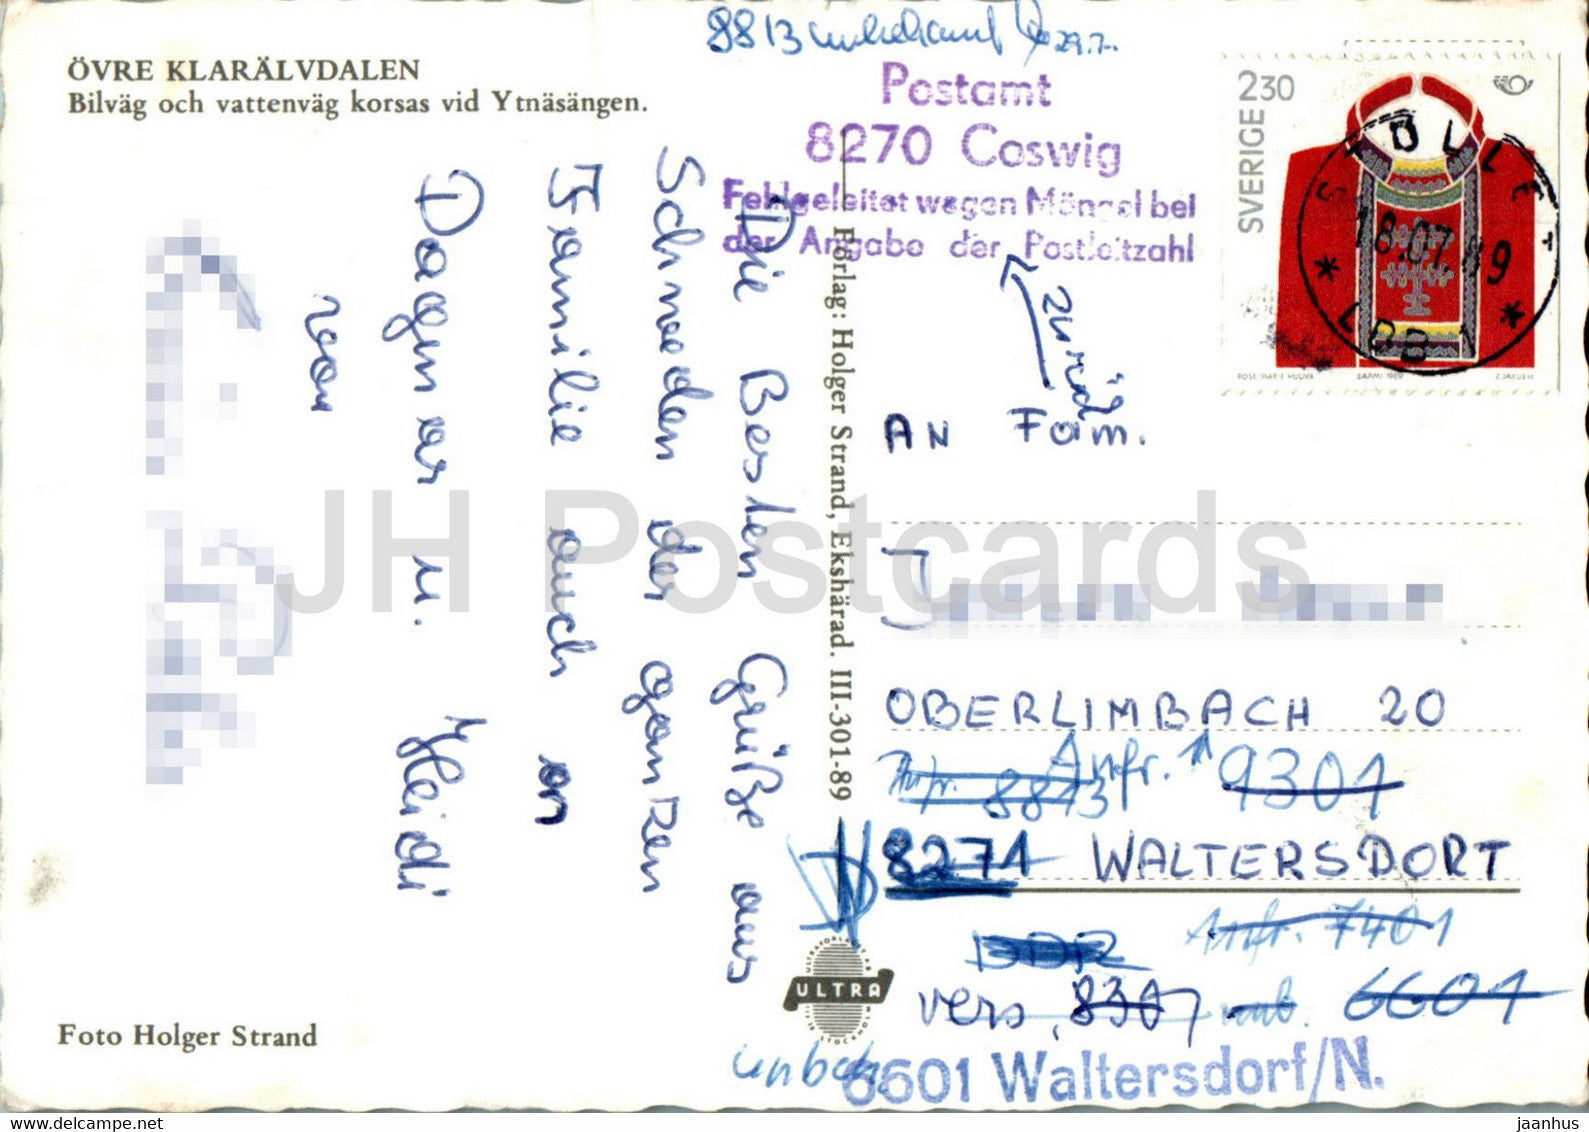 ÖVRE KLARÄLVDALEN
Bilväg och vattenväg korsas vid Ytnäsängen.
8813 unbekannt 29.7.
Postamt
8270 Coswig
Fehlgeleitet wegen Mängel bei
der Angabe der Postleitzahl
zurück
SVERIGE 230
ROSE-MARIE HUUVA SÁPMI 1989 Z. JAKUS SC.
18.07.89
LBB 1
Die Besten Grüße aus
Schweden der ganzen
Familie auch an
Dagmar u. Heidi
von
Förlag: Holger Strand, Ekshärad. III-301-89
AN Fam.
OBERLIMBACH 20
Anfr. 8813 Anfr. 9301
8271 WALTERSDORT
Anfr. 7401
DDR
vers. 8307 unb. 6601
unbek.
6601 Waltersdorf/N.
ULTRA
Foto Holger Strand
JH Postcards
www.delcampe.net
jaanhus